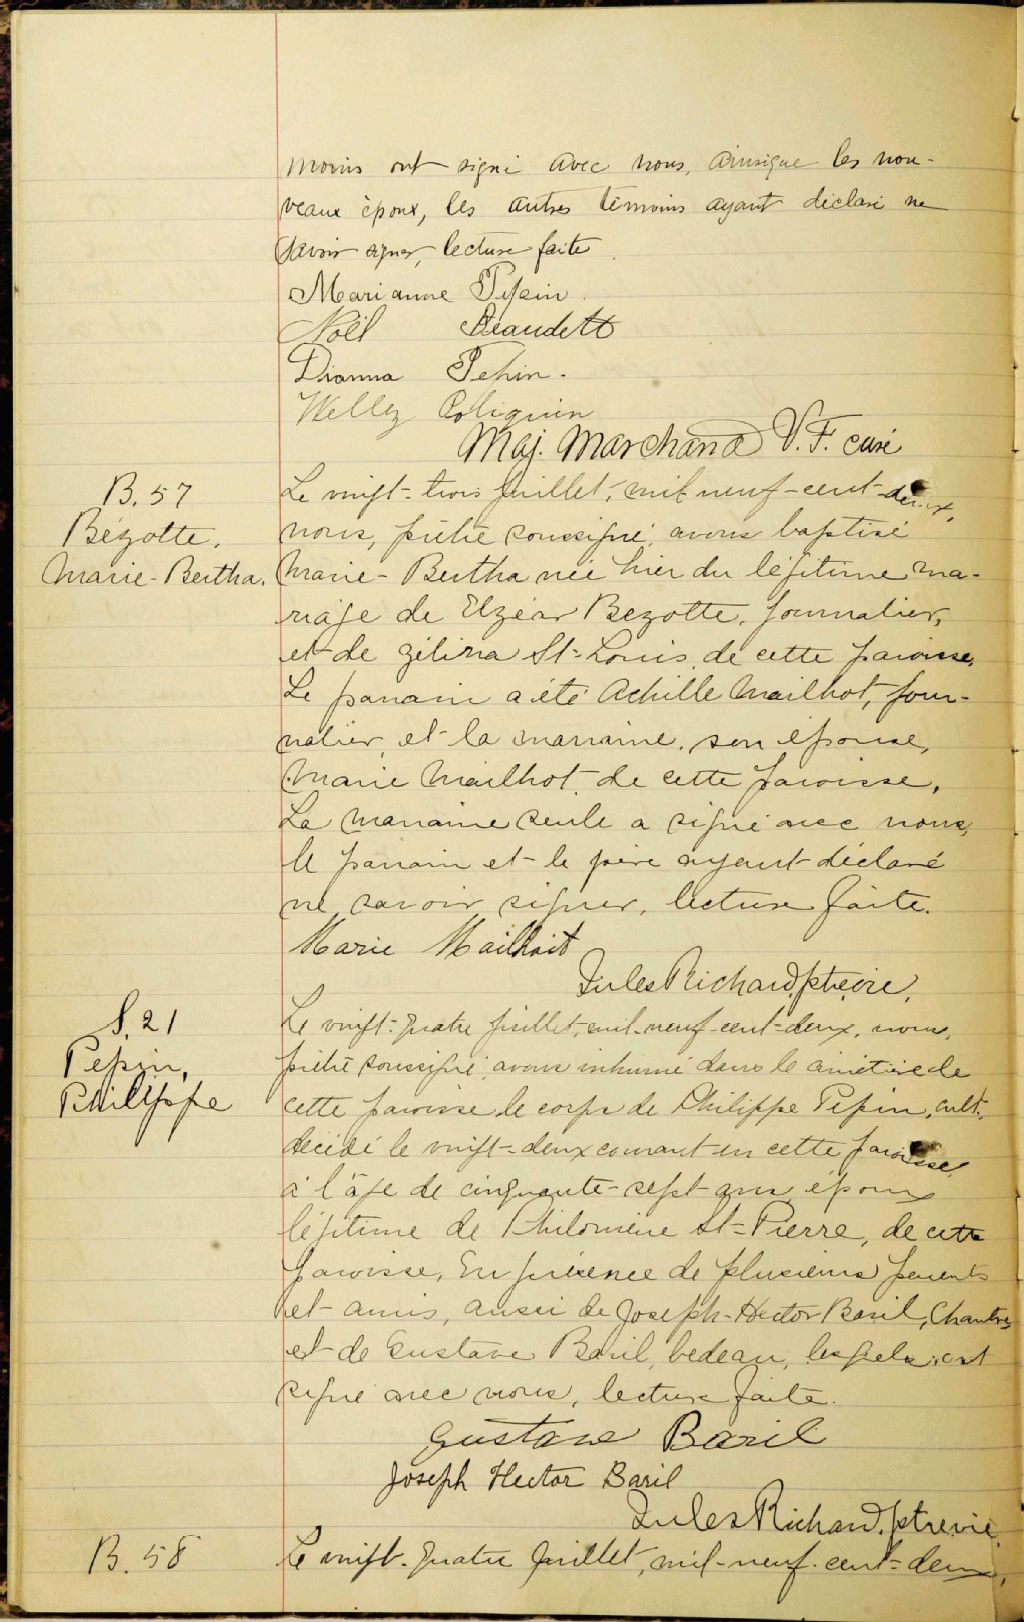 moins ont signé avec nous, ainsique les nou-
veaux époux, les autres témoins ayant déclaré ne
savoir signer, lecture faite.
Marianne Pepin.
Noël Beaudett
Dianna Pepin.
Welley Poliquin
Maj. Marchand V. F. curé
B. 57
Bézotte,
Marie-Bertha.
Le vingt-trois juillet, mil neuf-cent-deux,
nous, prêtre soussigné, avons baptisé
Marie-Bertha née hier du légitime ma-
riage de Elzéar Bezotte, journalier,
et de Zélina St-Louis, de cette paroisse,
Le parrain a été Achille Mailhot, jour-
nalier, et la marraine, son épouse,
Marie Mailhot, de cette paroisse,
La marraine seule a signé avec nous,
le parrain et le père ayant déclaré
ne savoir signer, lecture faite.
Marie Mailhoit
Jules Richard, ptre, vic.
S. 21
Pepin,
Philippe
Le vingt-quatre juillet, mil-neuf-cent-deux, nous,
prêtre soussigné, avons inhumé dans le cimetière de
cette paroisse le corps de Philippe Pepin, cult.
décédé le vingt-deux courant en cette paroisse,
à l'âge de cinquante-sept ans, époux
légitime de Philomène St-Pierre, de cette
paroisse, En présence de plusieurs parents
et amis, aussi de Joseph-Hector Baril, Chantre,
et de Gustave Baril, bedeau, lesqels ont
signé avec nous, lecture faite.
Gustave Baril
Joseph Hector Baril
Jules Richard, ptre vic.
B. 58
Le vingt-quatre juillet, mil-neuf-cent-deux,